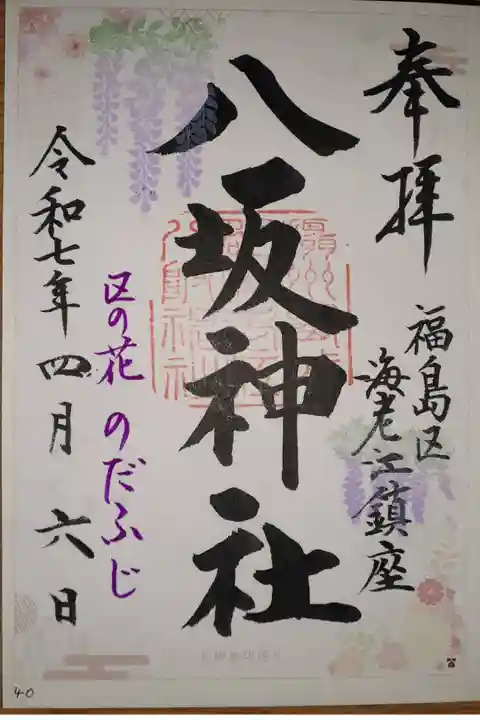 奉拝
福島区
海老江鎮座
八坂神社
区の花 のだふじ
令和七年四月六日
40